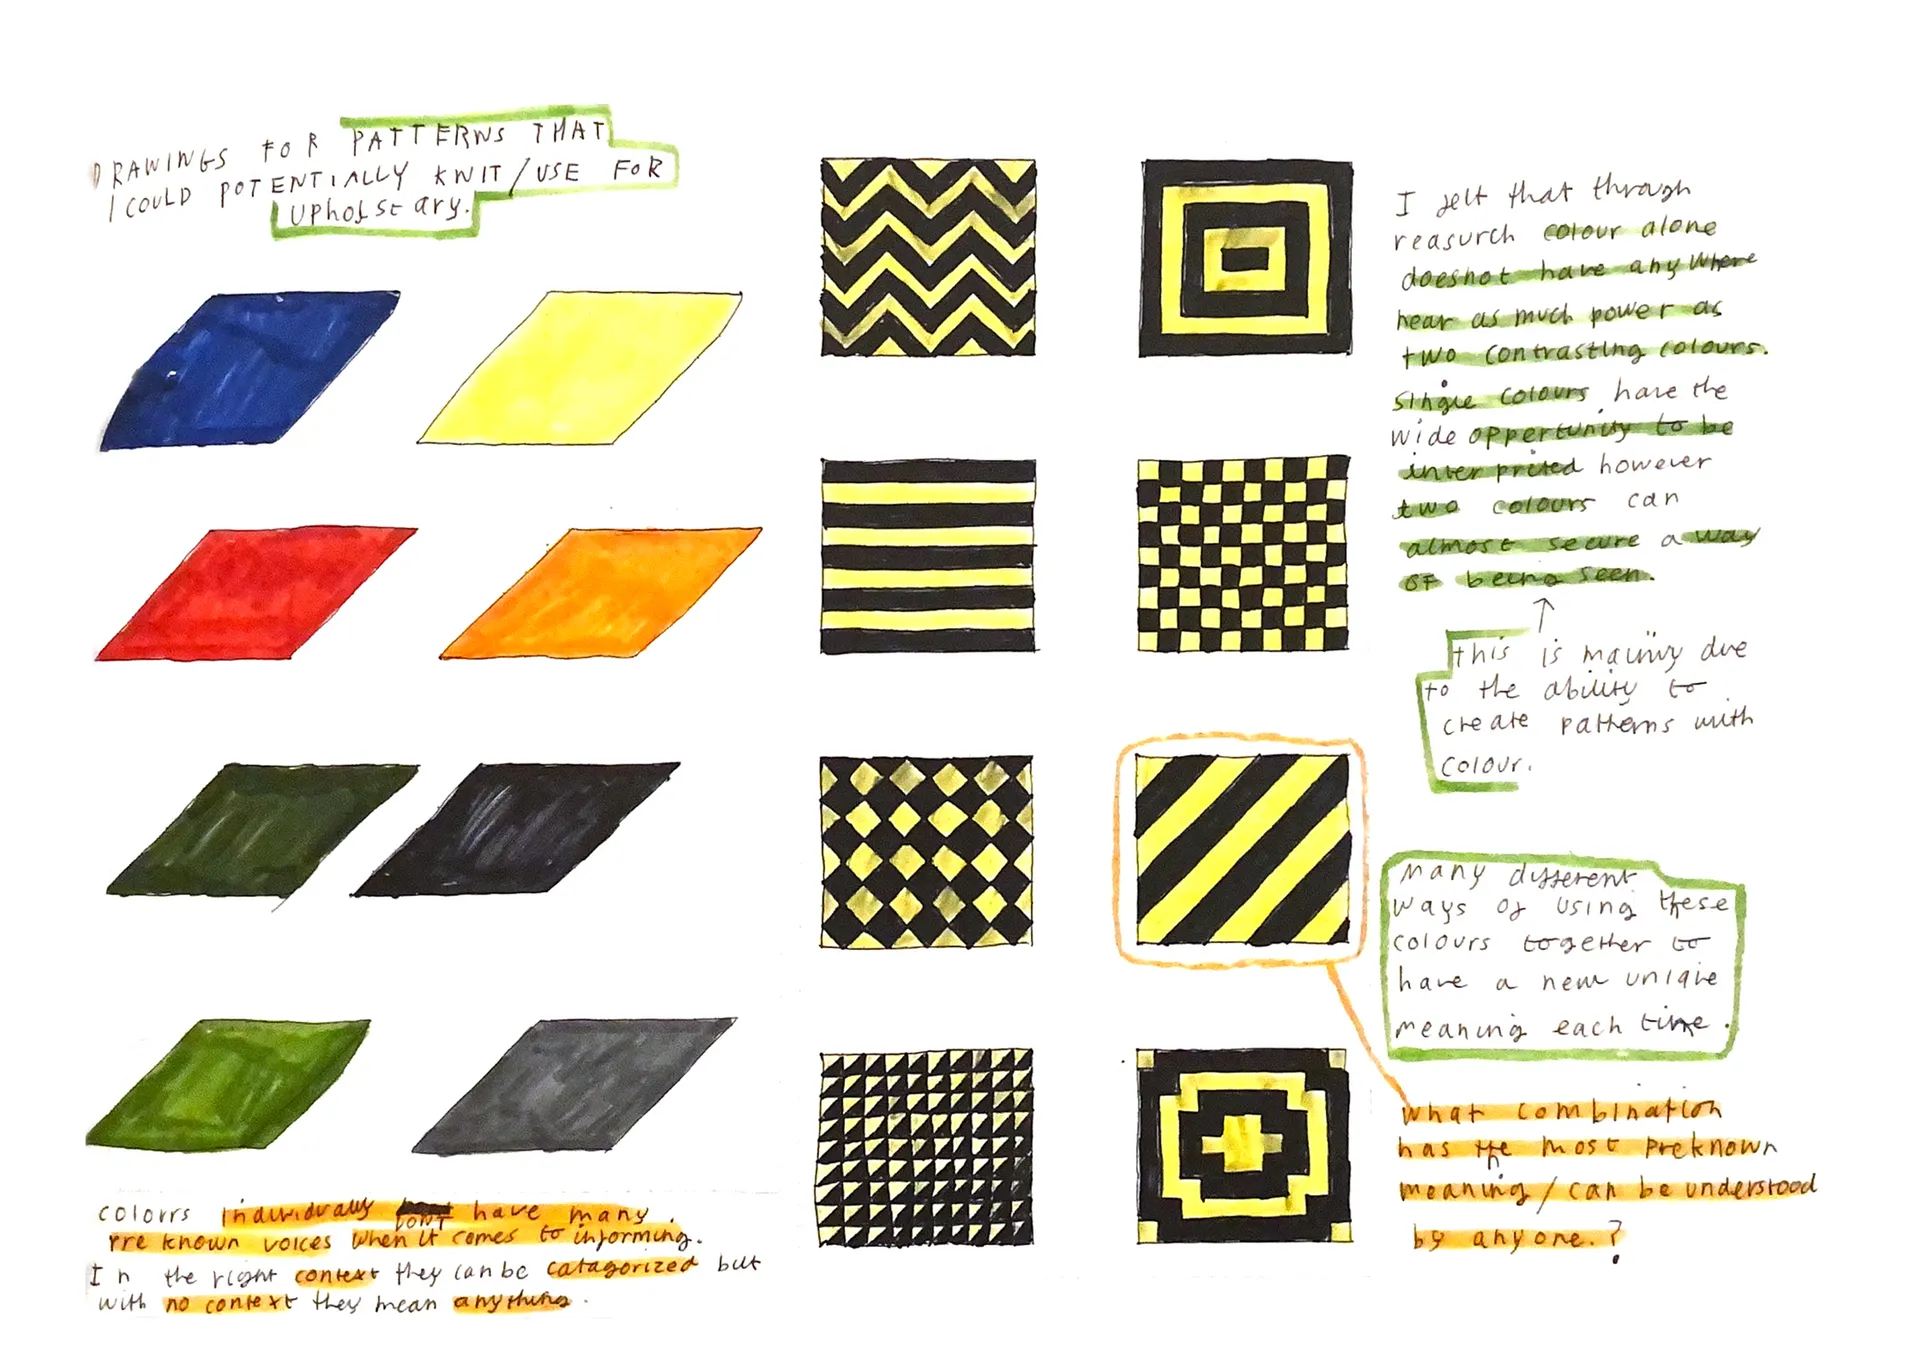 DRAWINGS FOR PATTERNS THAT
I COULD POTENTIALLY KNIT/USE FOR
UPHOLSTARY.
colours individually dont have many
pre known voices when it comes to informing.
In the right context they can be catagorized but
with no context they mean anything.
I felt that through
reasurch colour alone
doesnot have any where
near as much power as
two contrasting colours.
single colours have the
wide oppertunity to be
interprited however
two colours can
almost secure a way
of being seen.
this is mainly due
to the ability to
create patterns with
colour.
many different
ways of using these
colours together to
have a new unique
meaning each time.
what combination
has the most preknown
meaning/can be understood
by anyone.?